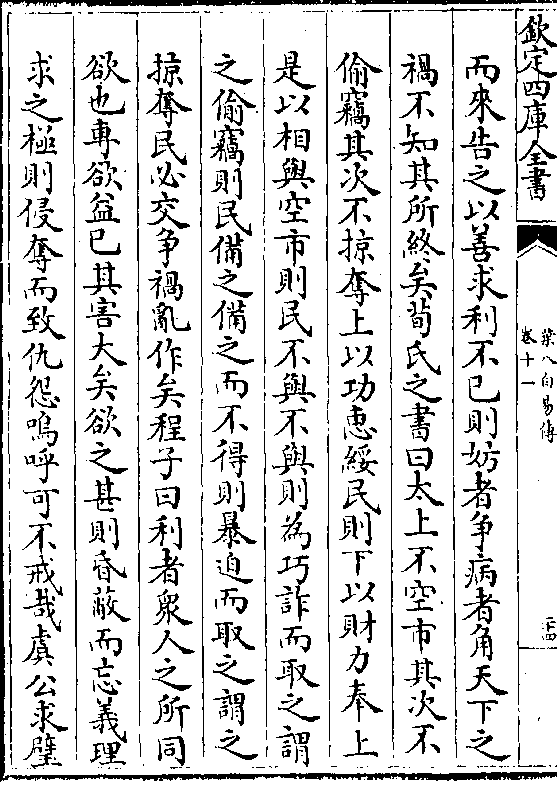 欽定四庫全書
葉八白易傳
卷十一
二十四
而來告之以善求利不已則妨者争病者角天下之
禍不知其所終矣荀氏之書曰太上不空市其次不
偷竊其次不掠奪上以功惠綏民則下以財力奉上
是以相與空市則民不與不與則為巧詐而取之謂
之偷竊則民備之備之而不得則暴迫而取之謂之
掠奪民必交争禍亂作矣程子曰利者衆人之所同
欲也專欲益已其害大矣欲之甚則昏蔽而忘義理
求之極則侵奪而致仇怨嗚呼可不戒哉虞公求璧